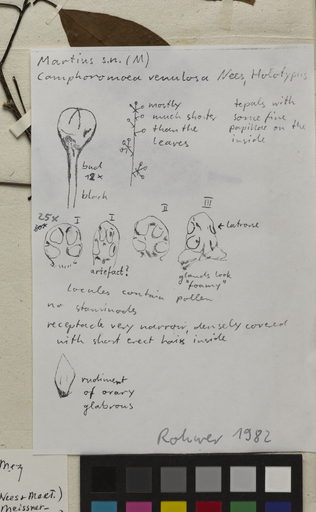 Martius s.n. (M)
Camphoromoea venulosa Nees, Holotypus
mostly
much shorter
than the
leaves
tepals with
some fine
papillae on the
inside
bud
12x
black
25x
I
I
II
III
← latrorse
artefact?
glands look
"foamy"
Locules contain pollen
no staminodes
receptacle very narrow, densely covered
with short erect hairs inside
rudiment
of ovary
glabrous
Rohwer 1982
Nees & Mart.)
Meissner